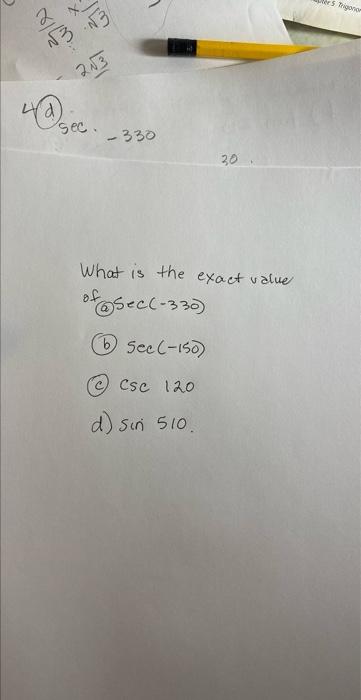 2/√3 × √3/√3
2√3
ter 5 Trigono
4 d
sec. -330
30.
What is the exact value
of a sec(-330)
b sec(-150)
c csc 120
d) sin 510.